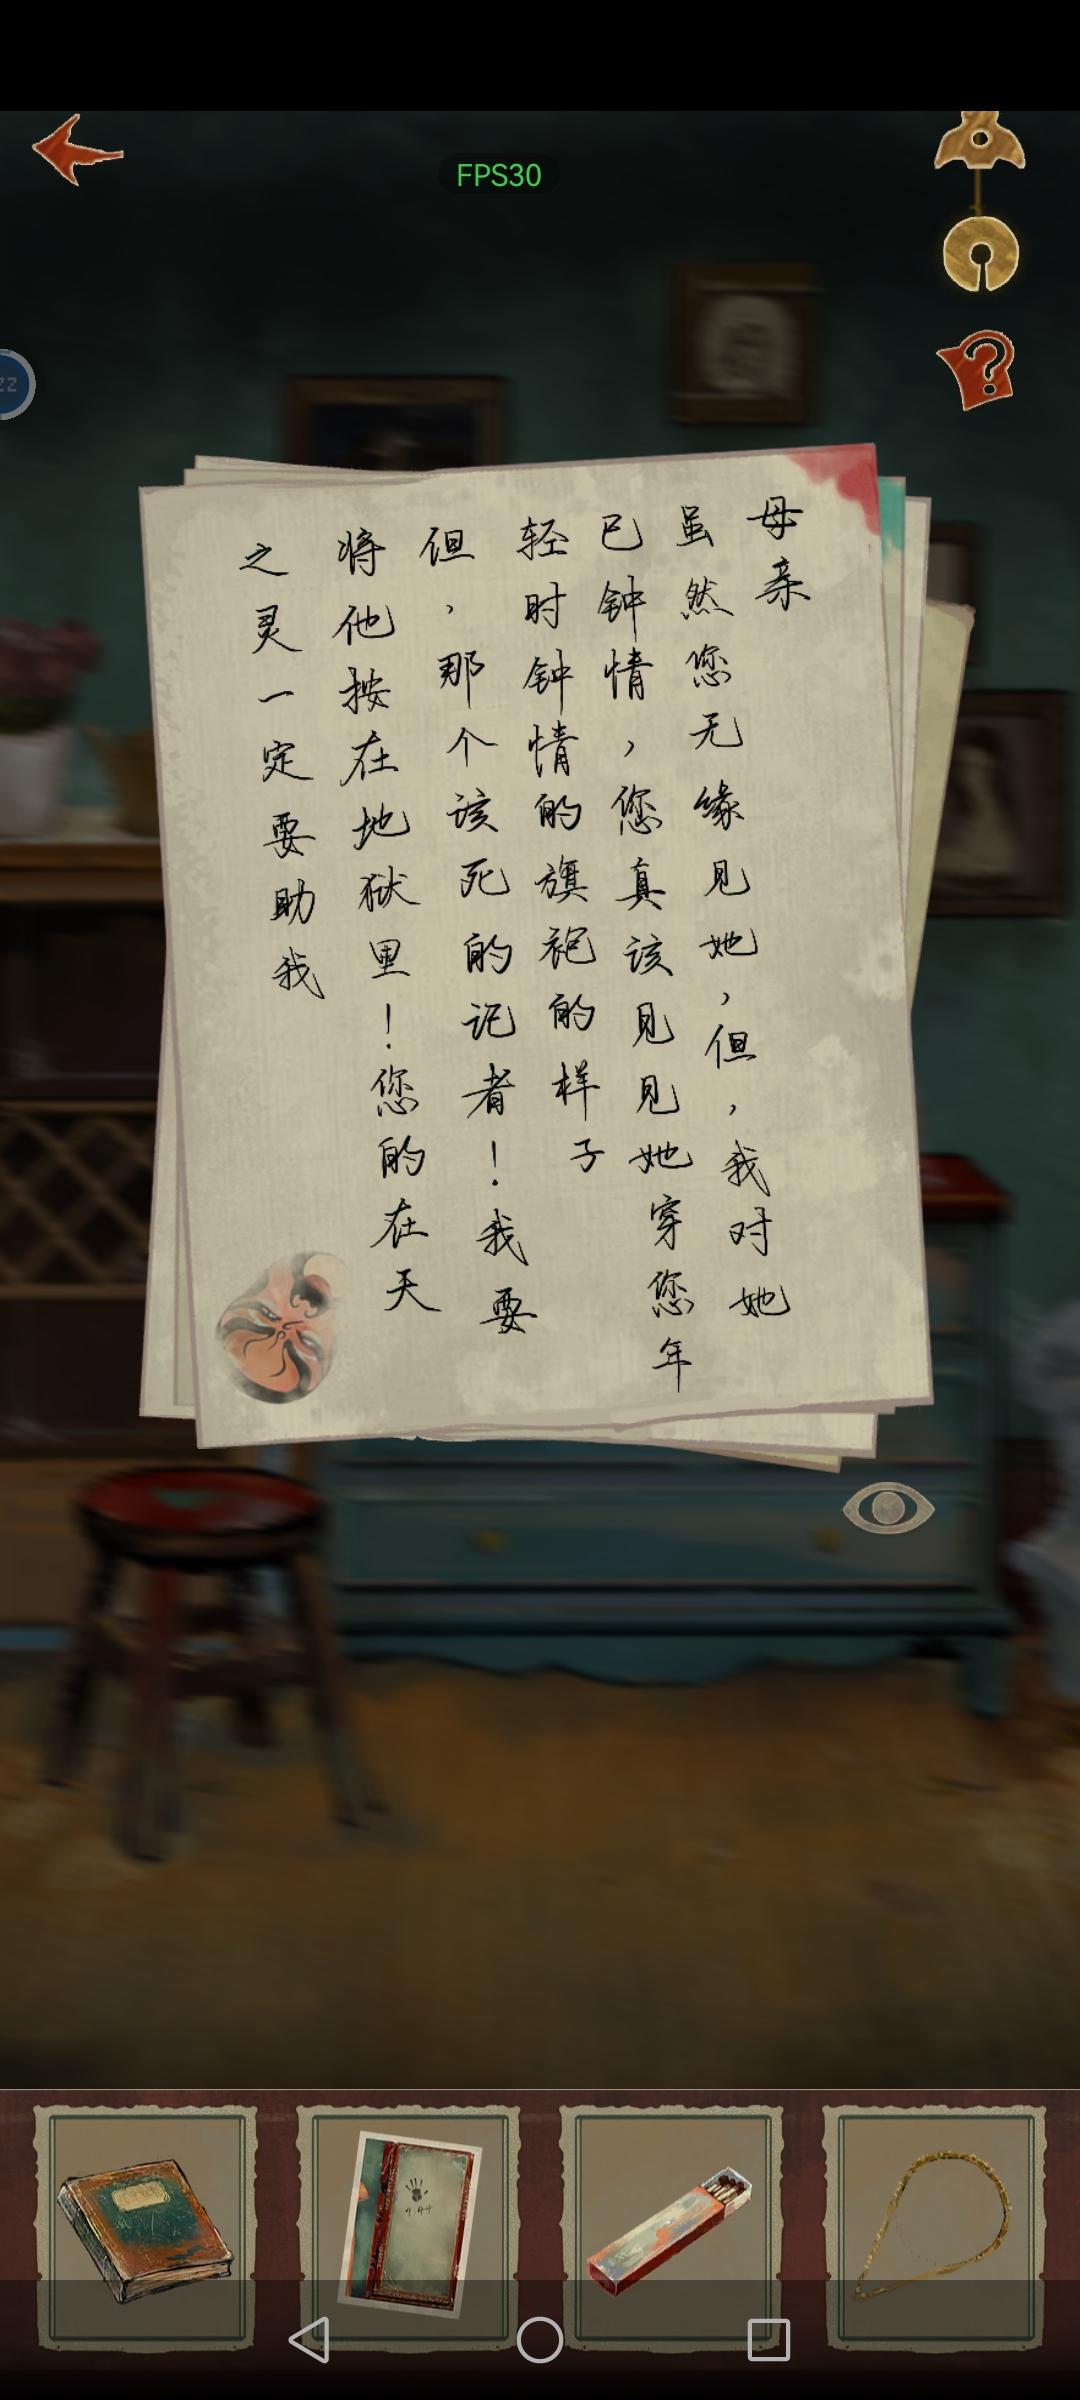 FPS30
母亲
虽然您无缘见她，但，我对她
已钟情，您真该见见她穿您年
轻时钟情的旗袍的样子
但，那个该死的记者！我要
将他按在地狱里！您的在天
之灵一定要助我